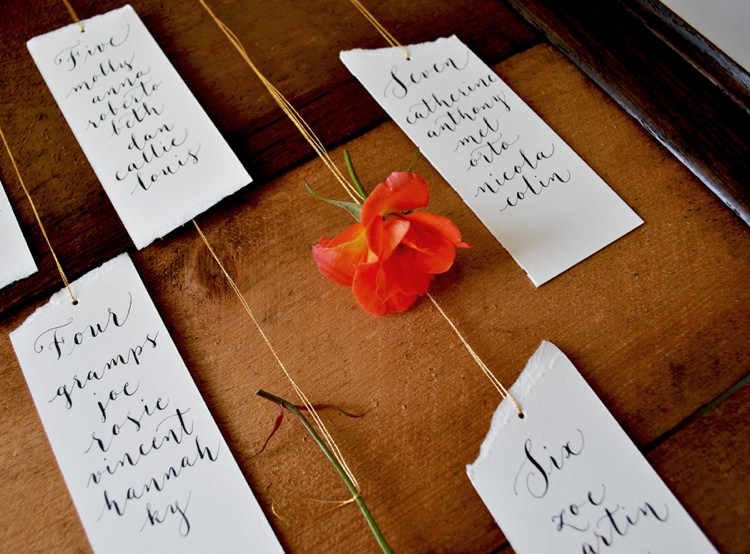 Five
molly
anna
roberto
beth
dan
callie
louis
Seven
catherine
anthony
mel
orto
nicola
colin
Four
gramps
joe
rosie
vincent
hannah
ky
Six
zoe